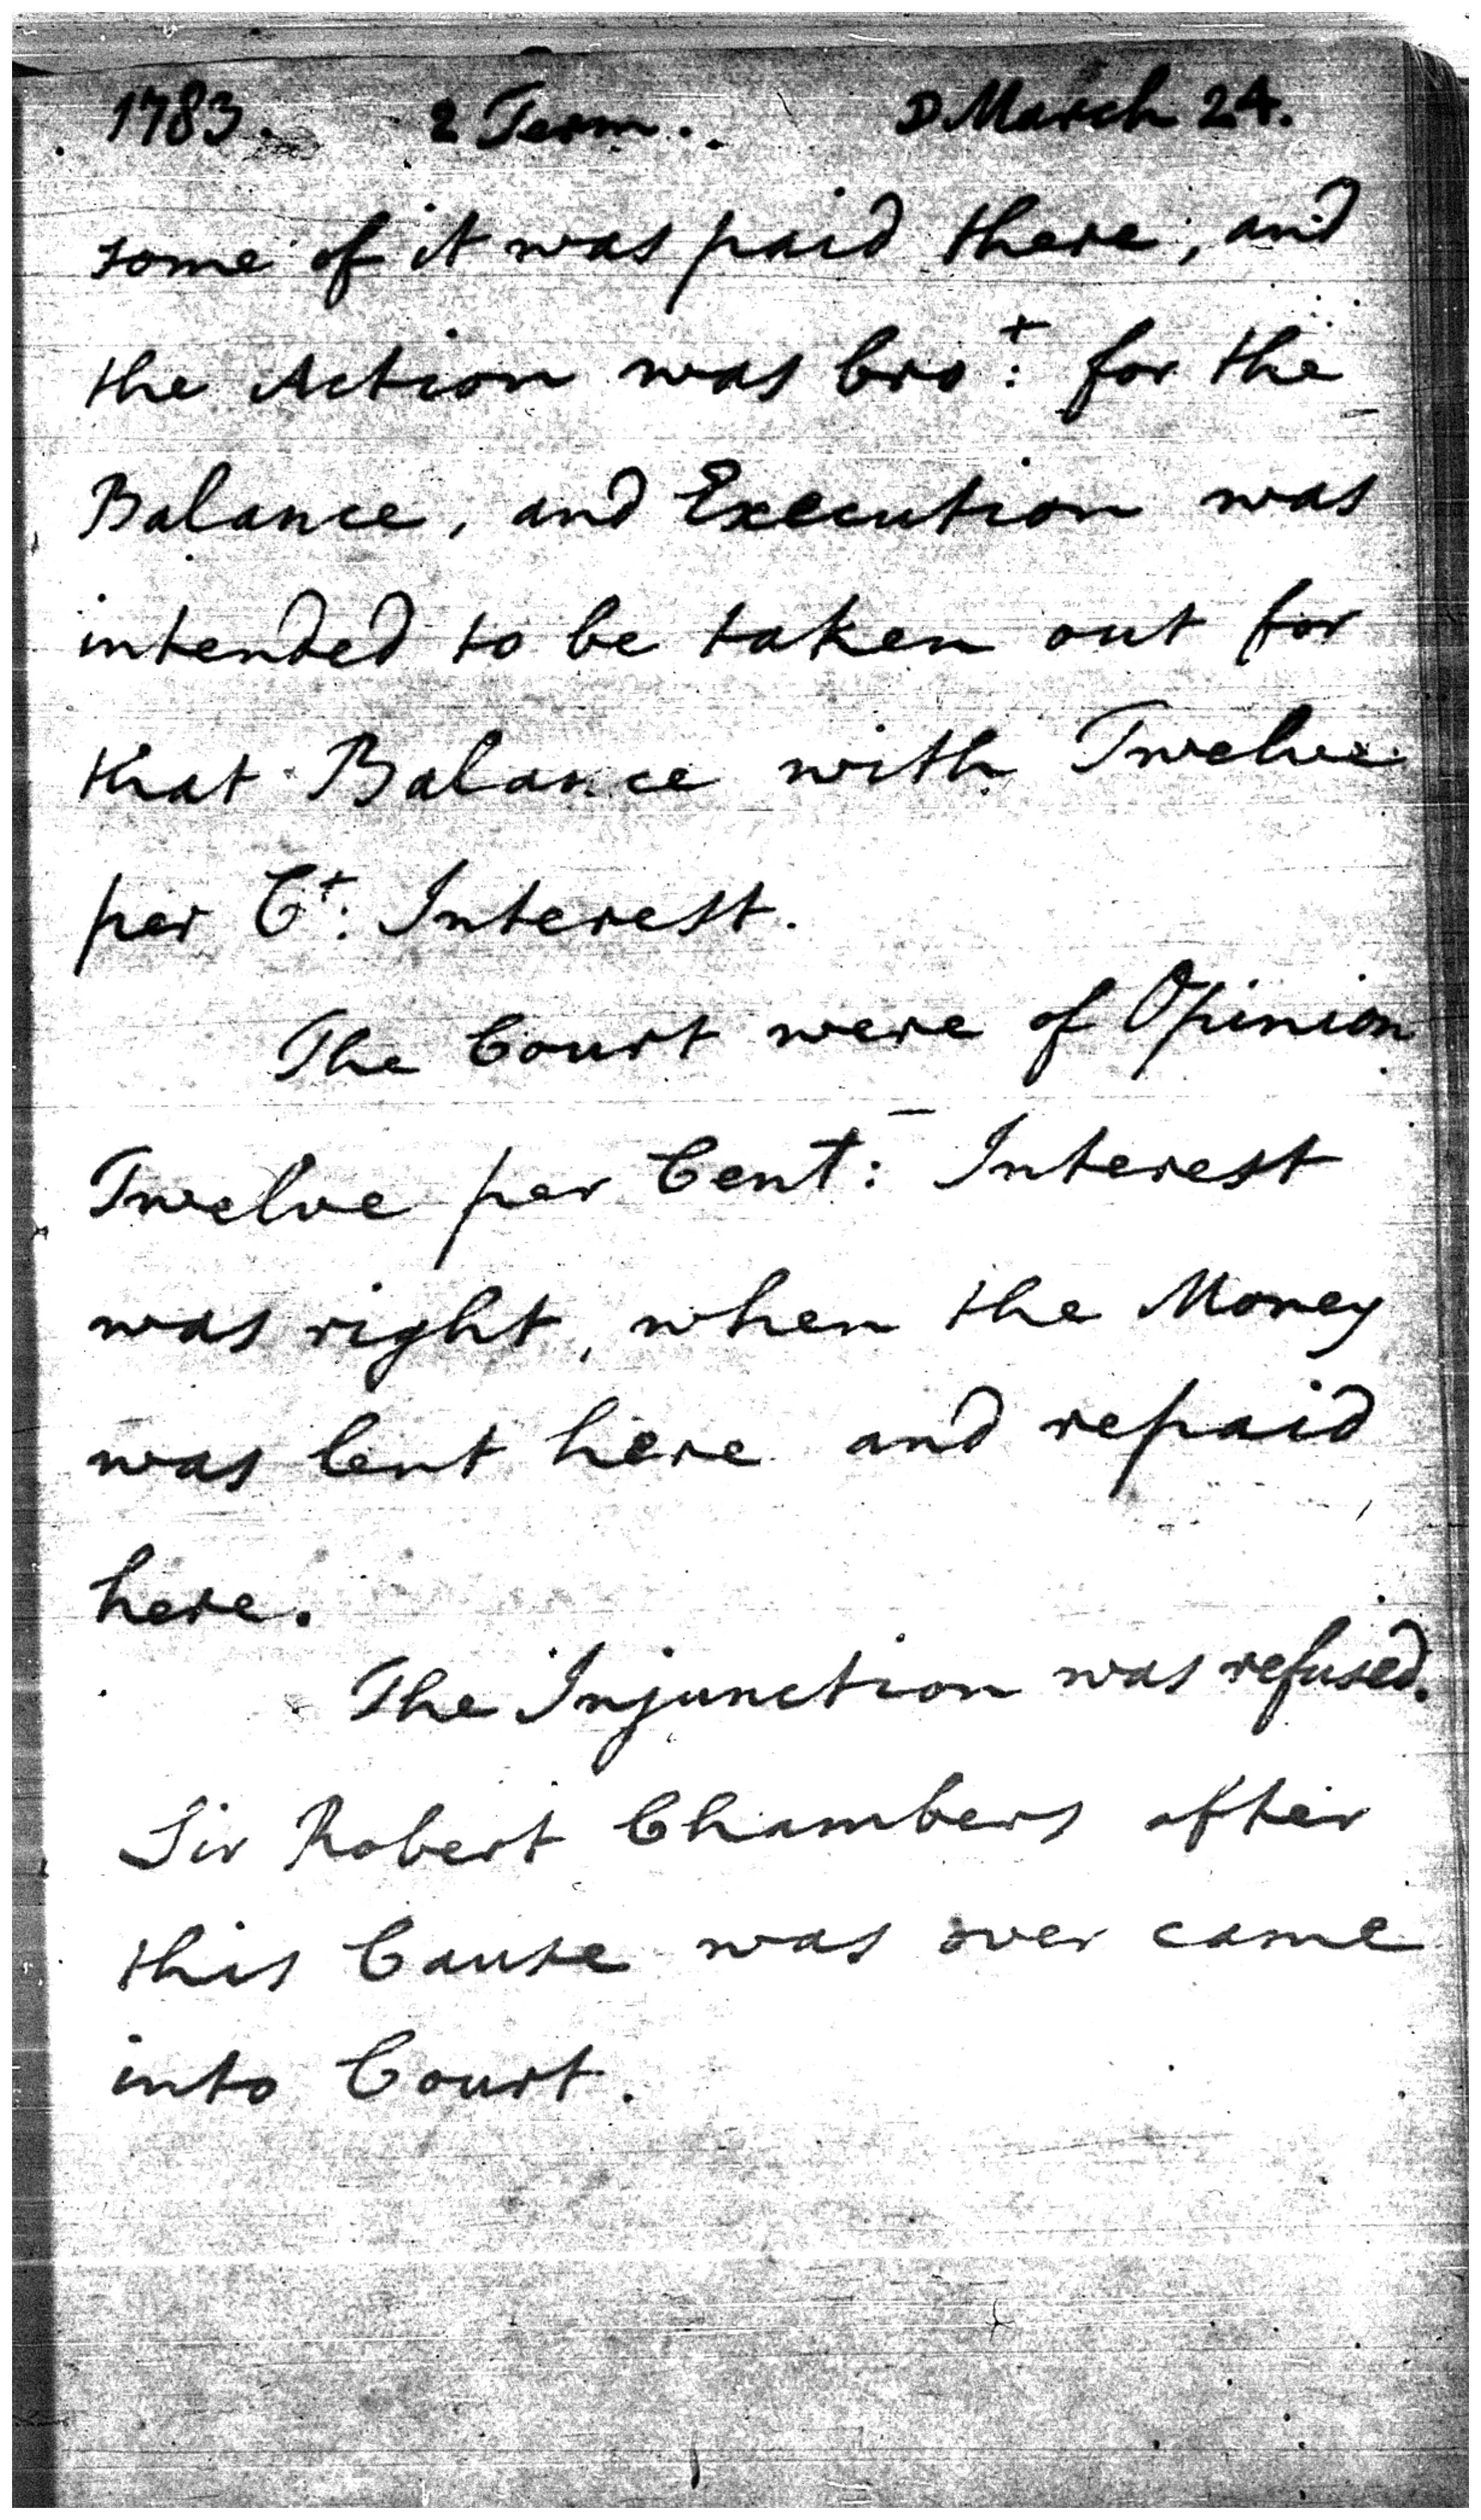 1783. 2 Term. D March 24.
some of it was paid there, and
the Action was bro^t: for the
Balance, and Execution was
intended to be taken out for
that Balance with Twelve
per C^t: Interest.
The Court were of Opinion
Twelve per Cent: Interest
was right, when the Money
was lent here and repaid
here.
The Injunction was refused.
Sir Robert Chambers after
this Cause was over came
into Court.